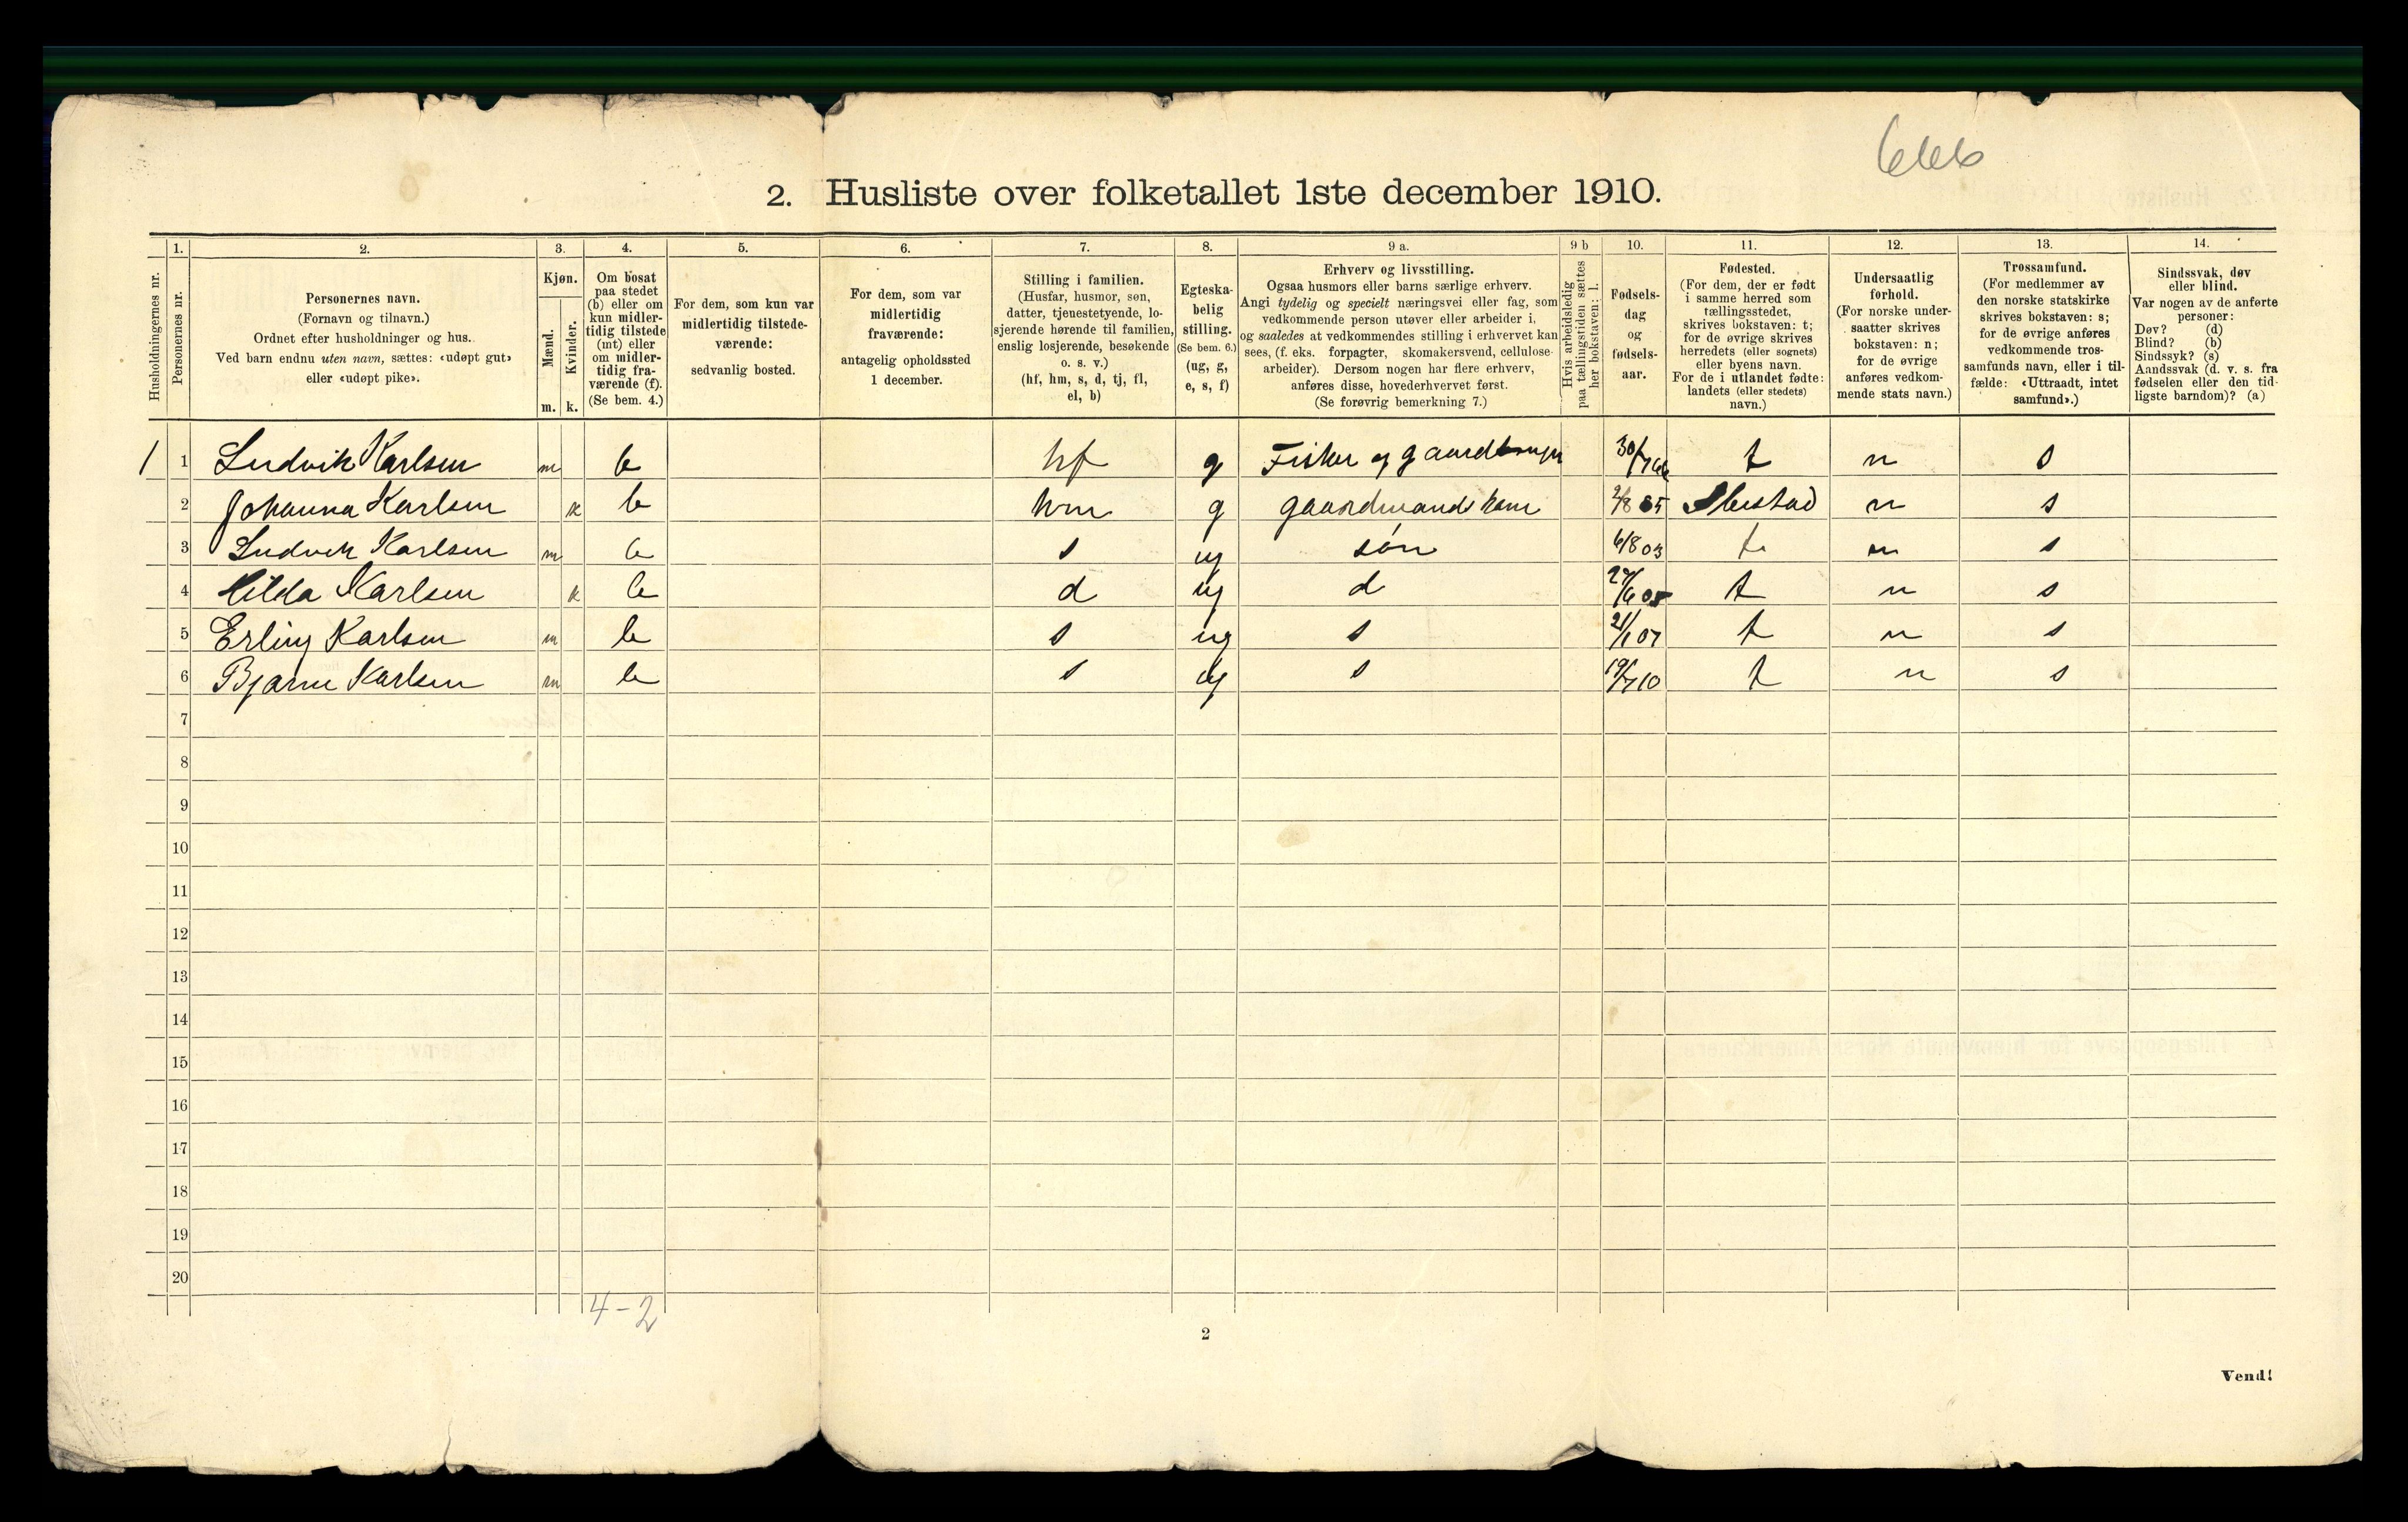 666
2. Husliste over folketallet 1ste december 1910.
Husholdningernes nr.
1.
Personernes nr.
2.
Personernes navn.
(Fornavn og tilnavn.)
Ordnet efter husholdninger og hus.
Ved barn endnu uten navn, sættes: «udøpt gut»
eller «udøpt pike».
3.
Kjøn.
Mænd.
Kvinder.
m. k.
4.
Om bosat
paa stedet
(b) eller om
kun midler-
tidig tilstede
(mt) eller
om midler-
tidig fra-
værende (f).
(Se bem. 4.)
5.
For dem, som kun var
midlertidig tilstede-
værende:
sedvanlig bosted.
6.
For dem, som var
midlertidig
fraværende:
antagelig opholdssted
1 december.
7.
Stilling i familien.
(Husfar, husmor, søn,
datter, tjenestetyende, lo-
sjerende hørende til familien,
enslig losjerende, besøkende
o. s. v.)
(hf, hm, s, d, tj, fl,
el, b)
8.
Egteska-
belig
stilling.
(Se bem. 6.)
(ug, g,
e, s, f)
9 a.
Erhverv og livsstilling.
Ogsaa husmors eller barns særlige erhverv.
Angi tydelig og specielt næringsvei eller fag, som
vedkommende person utøver eller arbeider i,
og saaledes at vedkommendes stilling i erhvervet kan
sees, (f. eks. forpagter, skomakersvend, cellulose-
arbeider). Dersom nogen har flere erhverv,
anføres disse, hovederhvervet først.
(Se forøvrig bemerkning 7.)
9 b
Hvis arbeidsledig
paa tællingstiden sættes
her bokstaven: l.
10.
Fødsels-
dag
og
fødsels-
aar.
11.
Fødested.
(For dem, der er født
i samme herred som
tællingsstedet,
skrives bokstaven: t;
for de øvrige skrives
herredets (eller sognets)
eller byens navn.
For de i utlandet fødte:
landets (eller stedets)
navn.)
12.
Undersaatlig
forhold.
(For norske under-
saatter skrives
bokstaven: n;
for de øvrige
anføres vedkom-
mende stats navn.)
13.
Trossamfund.
(For medlemmer av
den norske statskirke
skrives bokstaven: s;
for de øvrige anføres
vedkommende tros-
samfunds navn, eller i til-
fælde: «Uttraadt, intet
samfund».)
14.
Sindssvak, døv
eller blind.
Var nogen av de anførte
personer:
Døv? (d)
Blind? (b)
Sindssyk? (s)
Aandssvak (d. v. s. fra
fødselen eller den tid-
ligste barndom)? (a)
1 1 Ludvik Karlsen m b hf g Fisker og gaardbruger 30/7 66 t n s
2 Johanna Karlsen k b hm g gaardmands kone 2/8 65 Ibestad n s
3 Ludvik Karlsen m b s ug søn 6/8 03 t n s
4 Hilda Karlsen k b d ug d 27/6 05 t n s
5 Erling Karlsen m b s ug s 21/1 07 t n s
6 Bjarne Karlsen m b s ug s 19/7 10 t n s
7
8
9
10
11
12
13
14
15
16
17
18
19
20
4-2
2
Vend!